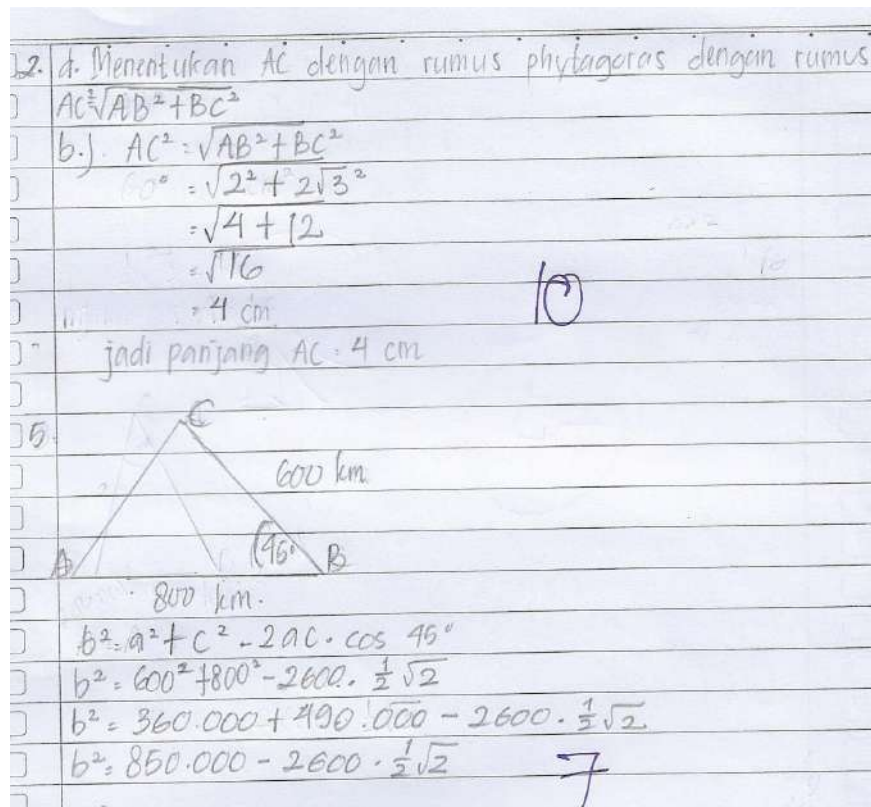 2. d. Menentukan AC dengan rumus phytagoras dengan rumus
AC²=√AB²+BC²
b.). AC² = √AB²+BC²
= √2² + 2√3²
= √4 + 12
= √16
= 4 cm
10
jadi panjang AC = 4 cm
5.
C
600 km
45°
A
B
800 km.
b² = a² + c² - 2ac. cos 45°
b² = 600² + 800² - 2600. ½√2
b² = 360.000 + 490.000 - 2600. ½√2
b² = 850.000 - 2600. ½√2
7